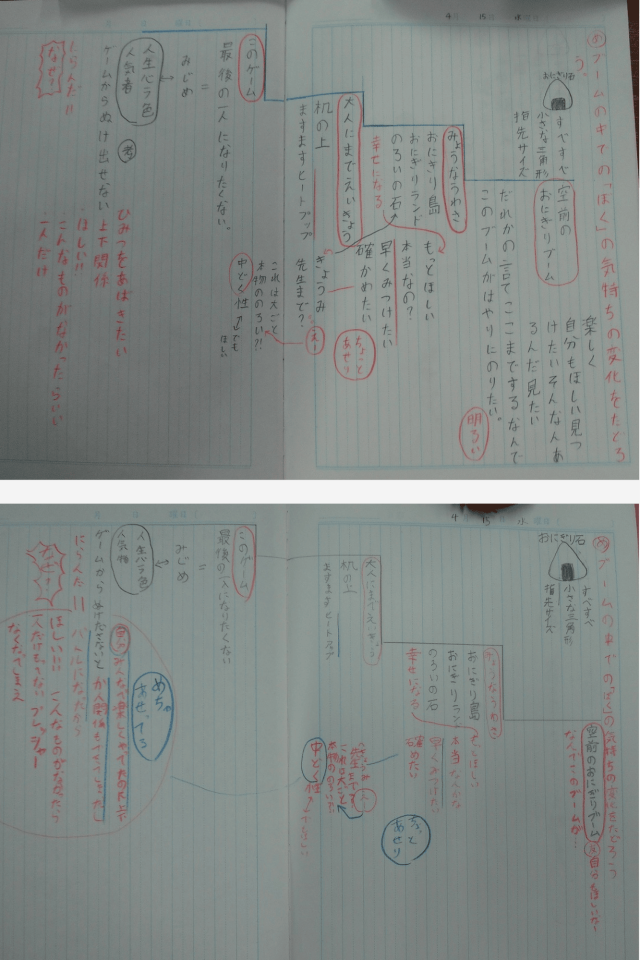 4 15 水
め ブームの中での「ぼく」の気持ちの変化をたどろ
う。
おにぎり石
すべすべ
小さな三角形
指先サイズ
空前の
おにぎりブーム
楽しく
自分もほしい見つ
けたいそんなんあ
るんだ見たい
だれかの言てここまでするなんで
このブームがはやりにのりたい。
明るい
みょうなうわさ
おにぎり島
おにぎりランド
のろいの石
幸せになる
もっとほしい
本当なの?
早くみつけたい
確かめたい
ちょこと
あせり
大人にまでえいきょう
机の上
ますますヒートアップ
きょうみ
先生まで?
これは大ごと
本物ののろい?!
中どく性
でも
ほしい
このゲーム
最後の一人になりたくない。
=
みじめ
人生心ラ色
人気者
ゲームからぬけ出せない
にらんだ!!
なぜ?
ひみつをあばきたい
上下関係
ほしい!!
こんなものがなかったらいい
一人だけ
4 15 水
め ブームの中での「ぼく」の気持ちの変化をたどろう
おにぎり石
すべすべ
小さな三角形
指先サイズ
空前のおにぎりブーム
自分もほしいな〜
なんでこのゲームが…
みょうなうわさ
おにぎり島
おにぎりラン
のろいの石
幸せになる
もっとほしい
本当なんかな
早くみつけたい
確めたい
あせり
大人にまでえいきょう
机の上
ますますヒートアップ
これは大ごと
本物ののろいだ
中どく性
このゲーム
最後の一人になりたくない
=
みじめ
人生心ラ色
人気者
ゲームからぬけださないと
にらんだ!!
なぜ?
バトルになったから
めちゃ
あせってる
ほしい!! こんなものがなかったら
一人だけもってないプレッシャー